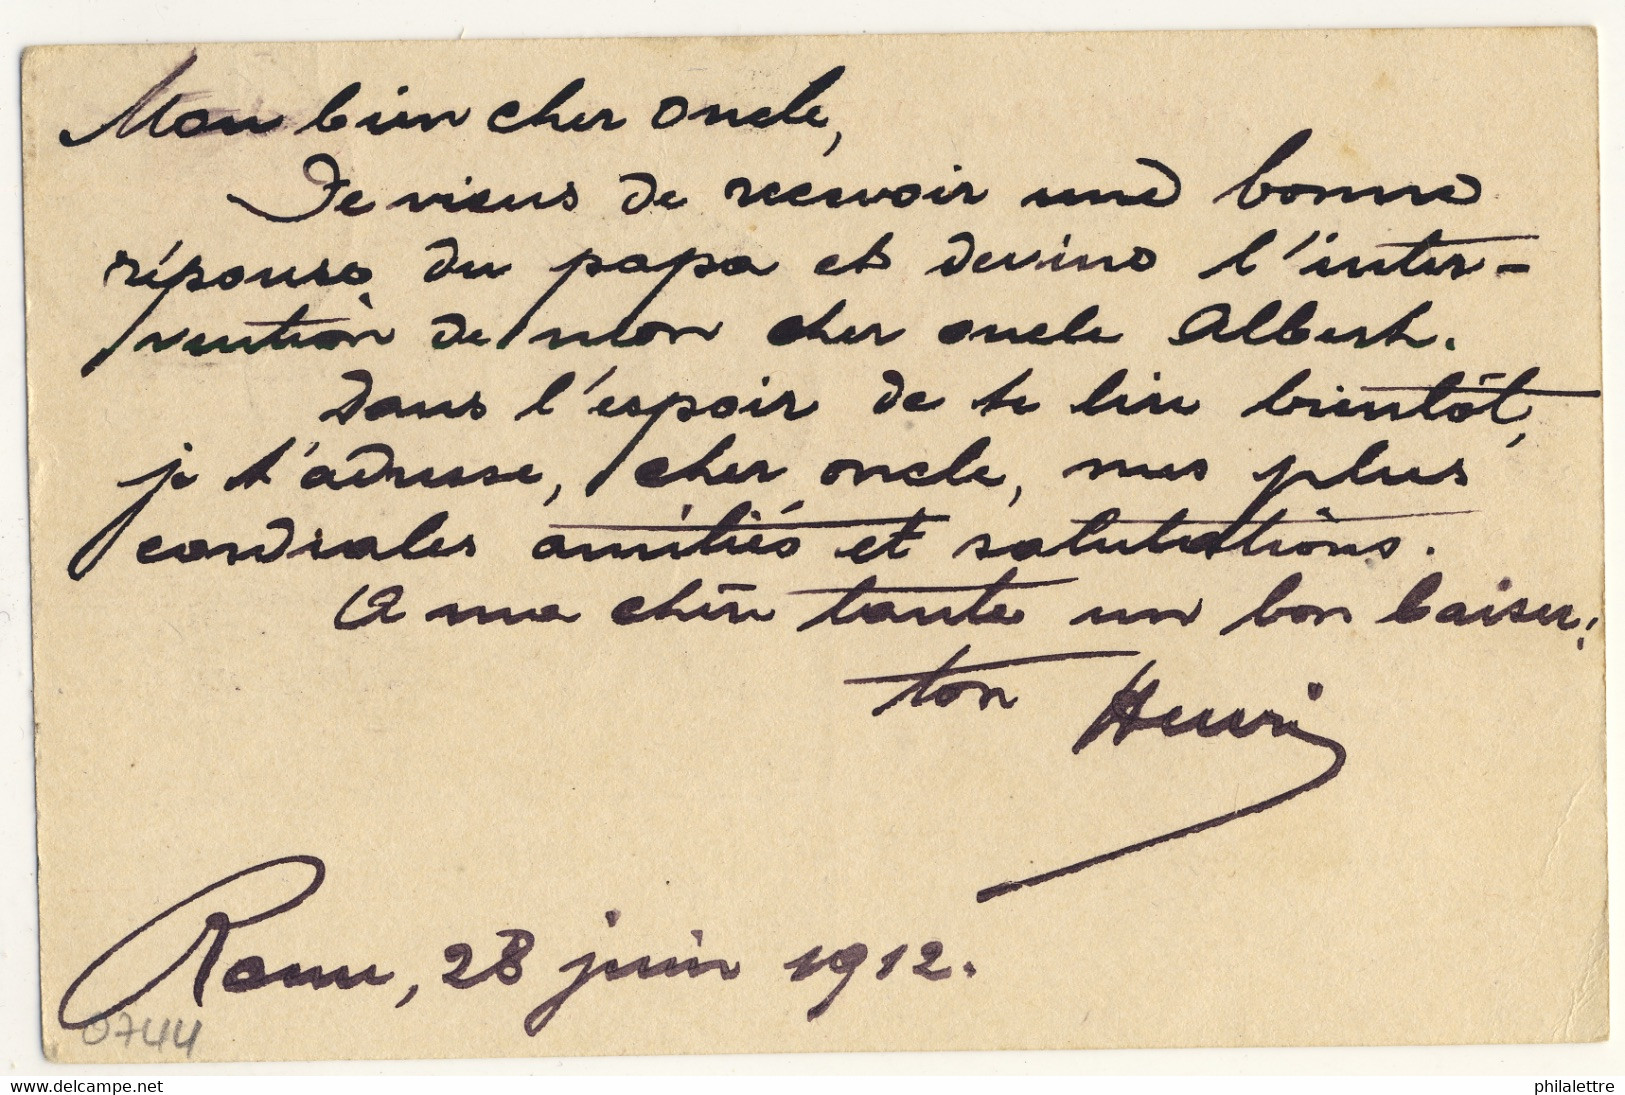 Mon bien cher oncle,
Je viens de recevoir une bonne
réponse du papa et devine l'inter-
vention de mon cher oncle Albert.
Dans l'espoir de te lire bientôt,
je t'adresse, cher oncle, mes plus
cordiales amitiés et salutations.
A ma chère tante un bon baiser.
ton Henri
Rome, 28 juin 1912.
0744
www.delcampe.net
philalettre